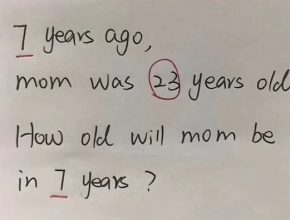 7 years ago,
mom was 23 years old
How old will mom be
in 7 years ?